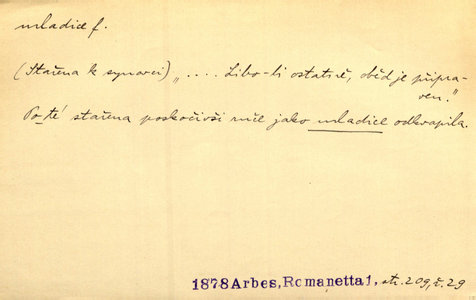 mladice f.
(Stařena k synovci) „ .... Libo-li ostatně, oběd je připra-
ven."
Po té stařena poskočivši ruče jako mladice odkvapila.
1878 Arbes, Romanetta 1, str. 209, ř. 29